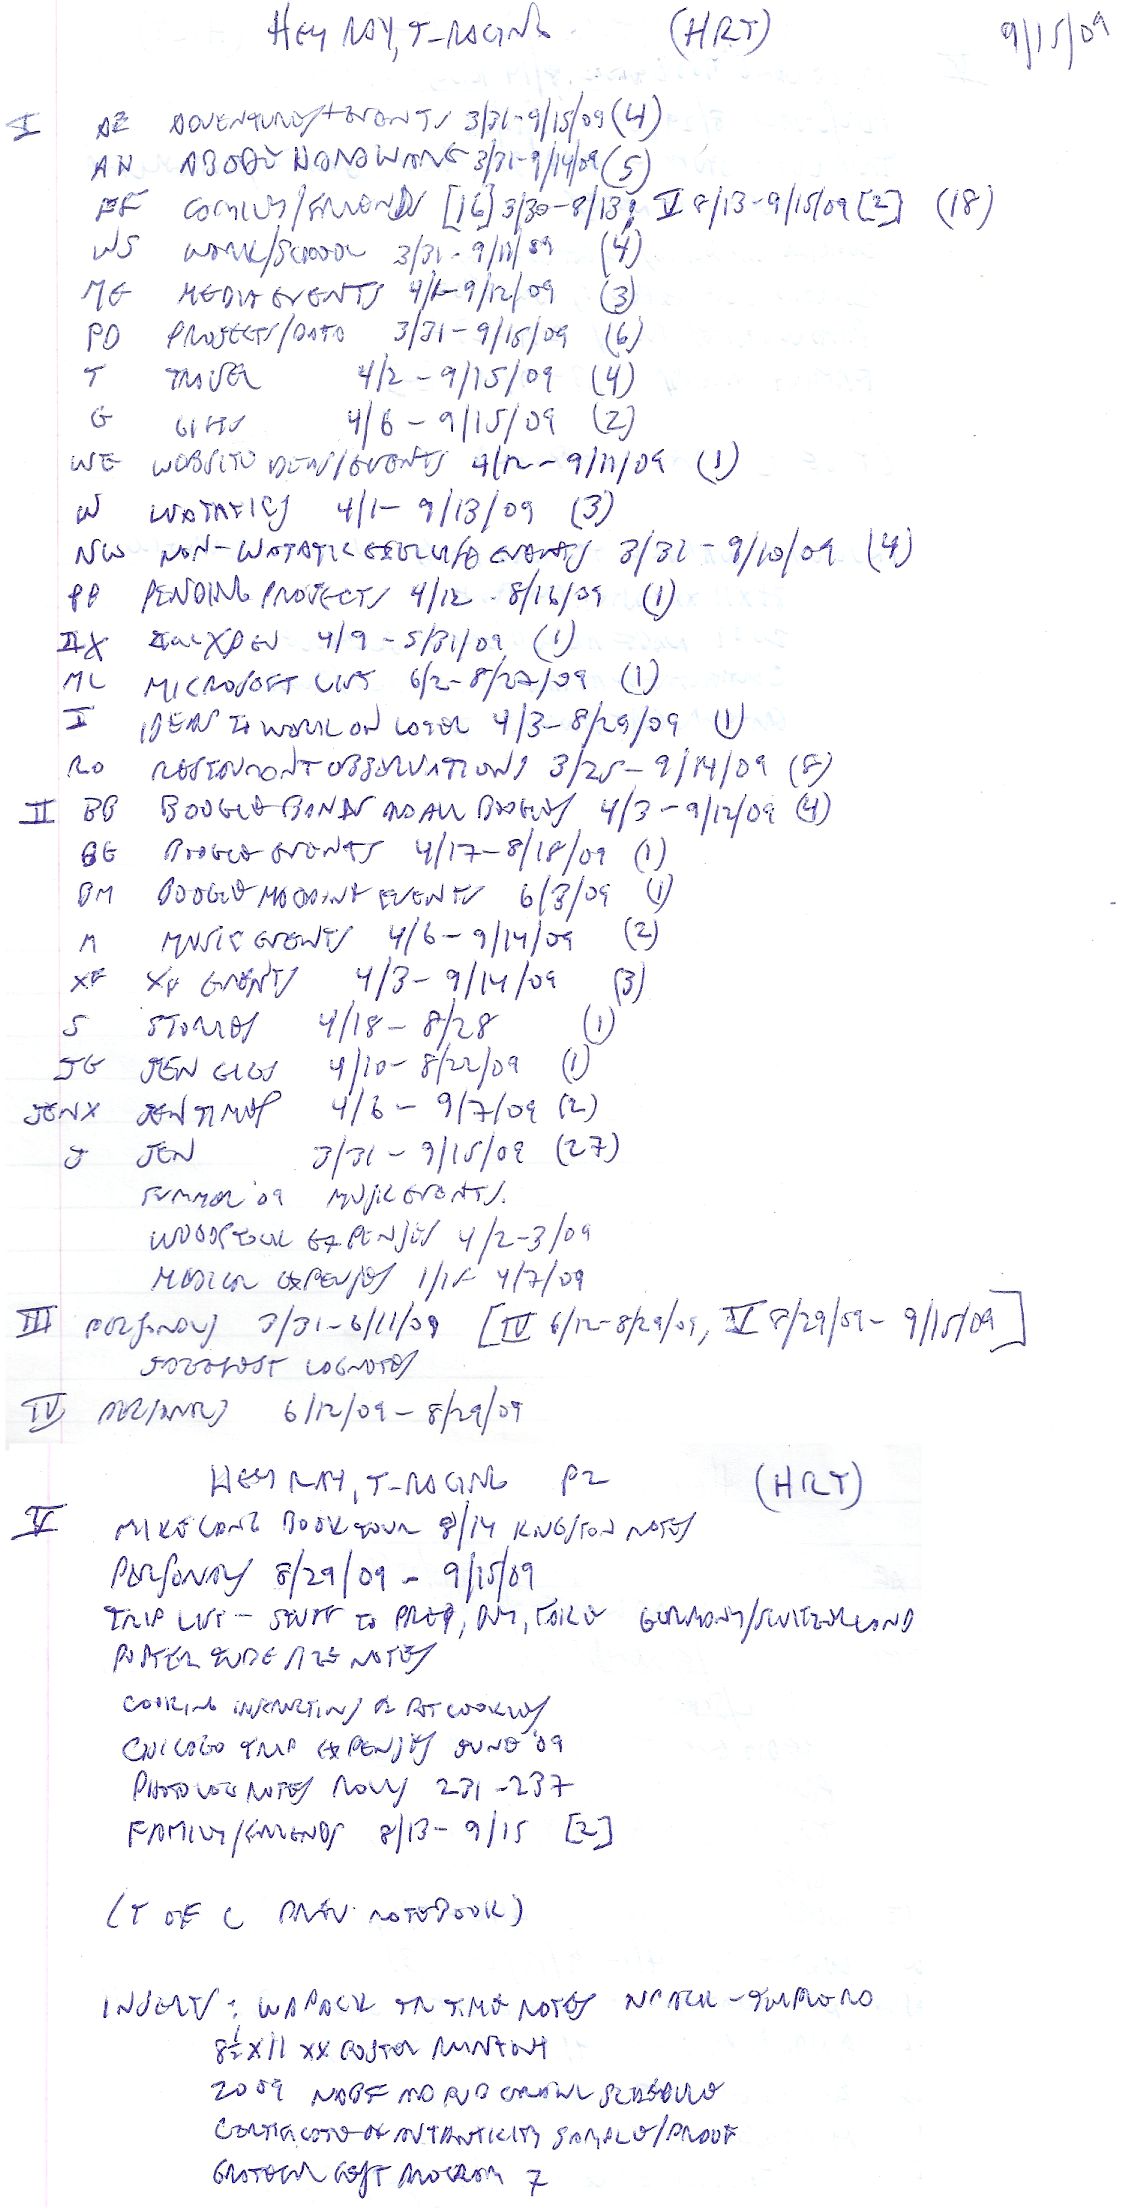 HEY RAY, T-RACING (HRT) 9/15/09
I AE ADVENTURES/+EVENTS 3/31-9/15/09 (4)
AH ABODE HANDWORK 3/31-9/14/09 (5)
FF FAMILY/FRIENDS [16] 3/30-8/13; V 8/13-9/15/09 [2] (18)
WS WORK/SCHOOL 3/31-9/11/09 (4)
ME MEDIA EVENTS 4/1-9/12/09 (3)
PD PROJECTS/DATA 3/31-9/15/09 (6)
T TRAVEL 4/2-9/15/09 (4)
G GIFTS 4/6-9/15/09 (2)
WE WEBSITE IDEAS/EVENTS 4/12-9/11/09 (1)
W WATATICS 4/1-9/13/09 (3)
NW NON-WATATIC EVENTS 3/31-9/10/09 (4)
PP PENDING PROJECTS 4/12-8/16/09 (1)
4/9-5/31/09 (1)
ML MICROSOFT LIST 6/2-8/27/09 (1)
I IDEAS TO WORK ON LATER 4/3-8/29/09 (1)
RO RESTAURANT OBSERVATIONS 3/25-9/14/09 (8)
II BB BOOGLE BANDS AND ALL BOOGLES 4/3-9/12/09 (4)
BE BOOGLE EVENTS 4/17-8/18/09 (1)
BM BOOGLE MACHINE EVENTS 6/3/09 (1)
M MUSIC EVENTS 4/6-9/14/09 (2)
XF XF EVENTS 4/3-9/14/09 (3)
S STORIES 4/18-8/28 (1)
JG JEN GIGS 4/10-8/22/09 (1)
JENX JEN TIMES 4/6-9/7/09 (2)
J JEN 3/31-9/15/09 (27)
SUMMER '09 MUSIC EVENTS.
WOODSTOCK EXPENSES 4/2-3/09
MEDICAL EXPENSES 1/1- 4/7/09
III PERSONALS 3/31-6/11/09 [IV 6/12-8/29/09, V 8/29/09-9/15/09]
LOGNOTES
IV PERSONALS 6/12/09-8/29/09
HEY RAY, T-RACING P2 (HRT)
V MIKE LANG BOOK TOUR 8/14 KINGSTON NOTES
PERSONALS 8/29/09-9/15/09
TRIP LIST - STUFF TO PREP, BUY, TAKE GERMANY/SWITZERLAND
POSTER TUBE SIZE NOTES
COOKING INSTRUCTIONS COOKIES
CHICAGO TRIP EXPENSES JUNE '09
PHOTO LOG NOTES ROLLS 231-237
FAMILY/FRIENDS 8/13-9/15 [2]
(T OF C PREV. NOTEBOOK)
INSERTS: WAPACK TR TIME NOTES NPACK-
8½X11 XX POSTER PRINTOUT
2009 SCHEDULE
CERTIFICATE OF AUTHENTICITY SAMPLE/PROOF
PROGRAM 7